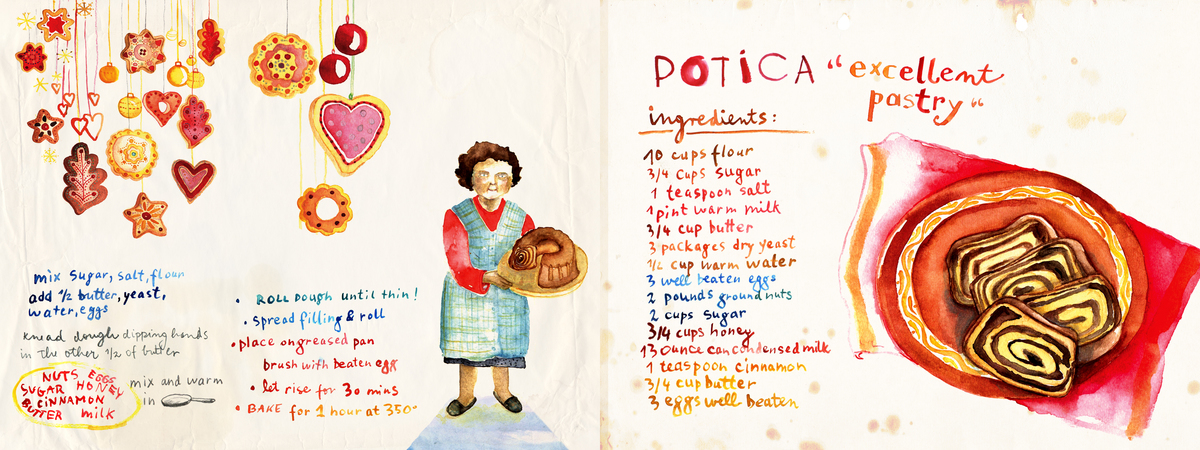 mix sugar, salt, flour
add 1/2 butter, yeast,
water, eggs
knead dough dipping hands
in the other 1/2 of butter
NUTS EGGS
SUGAR HONEY
& CINNAMON
BUTTER milk
mix and warm
in
• ROLL DOUGH until thin!
• spread filling & roll
• place on greased pan
brush with beaten egg
• let rise for 30 mins
• BAKE for 1 hour at 350°
POTICA “excellent
pastry“
ingredients:
10 cups flour
3/4 cups sugar
1 teaspoon salt
1 pint warm milk
3/4 cup butter
3 packages dry yeast
1/2 cup warm water
3 well beaten eggs
2 pounds ground nuts
2 cups sugar
3/4 cups honey
13 ounce can condensed milk
1 teaspoon cinnamon
3/4 cup butter
3 eggs well beaten